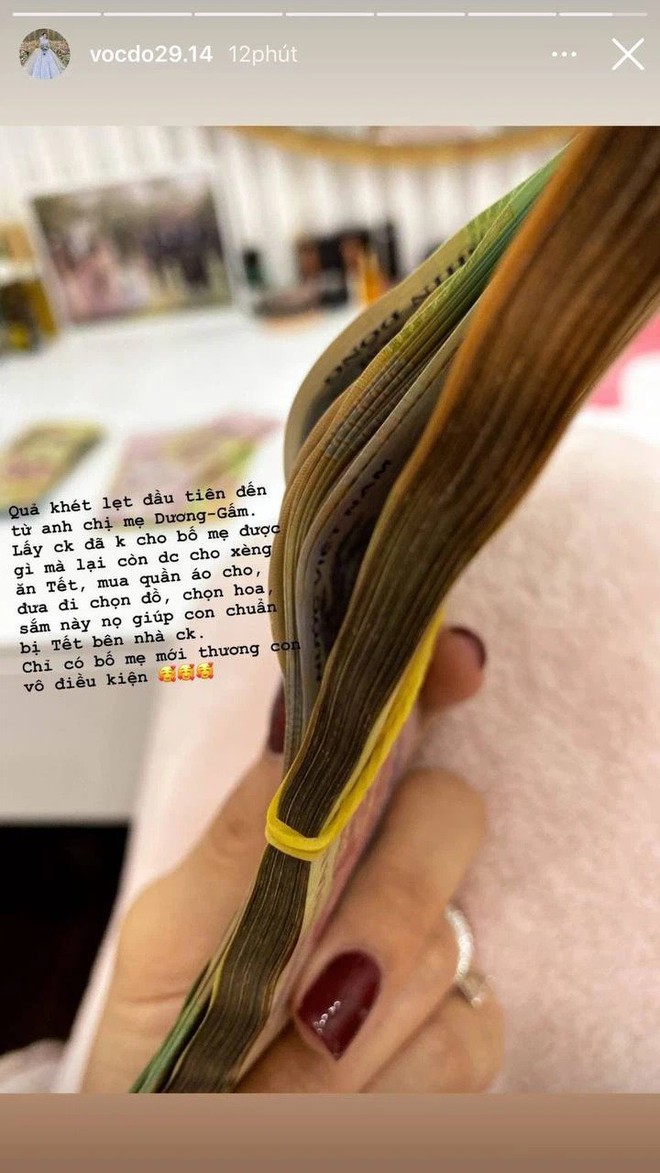 vocdo29.14 12phút
Quả khét lẹt đầu tiên đến
từ anh chị mẹ Dương-Gấm.
Lấy ck đã k cho bố mẹ được
gì mà lại còn dc cho xèng
ăn Tết, mua quần áo cho,
đưa đi chọn đồ, chọn hoa,
sắm này nọ giúp con chuẩn
bị Tết bên nhà ck.
Chỉ có bố mẹ mới thương con
vô điều kiện 🥰🥰🥰
VIỆT NAM